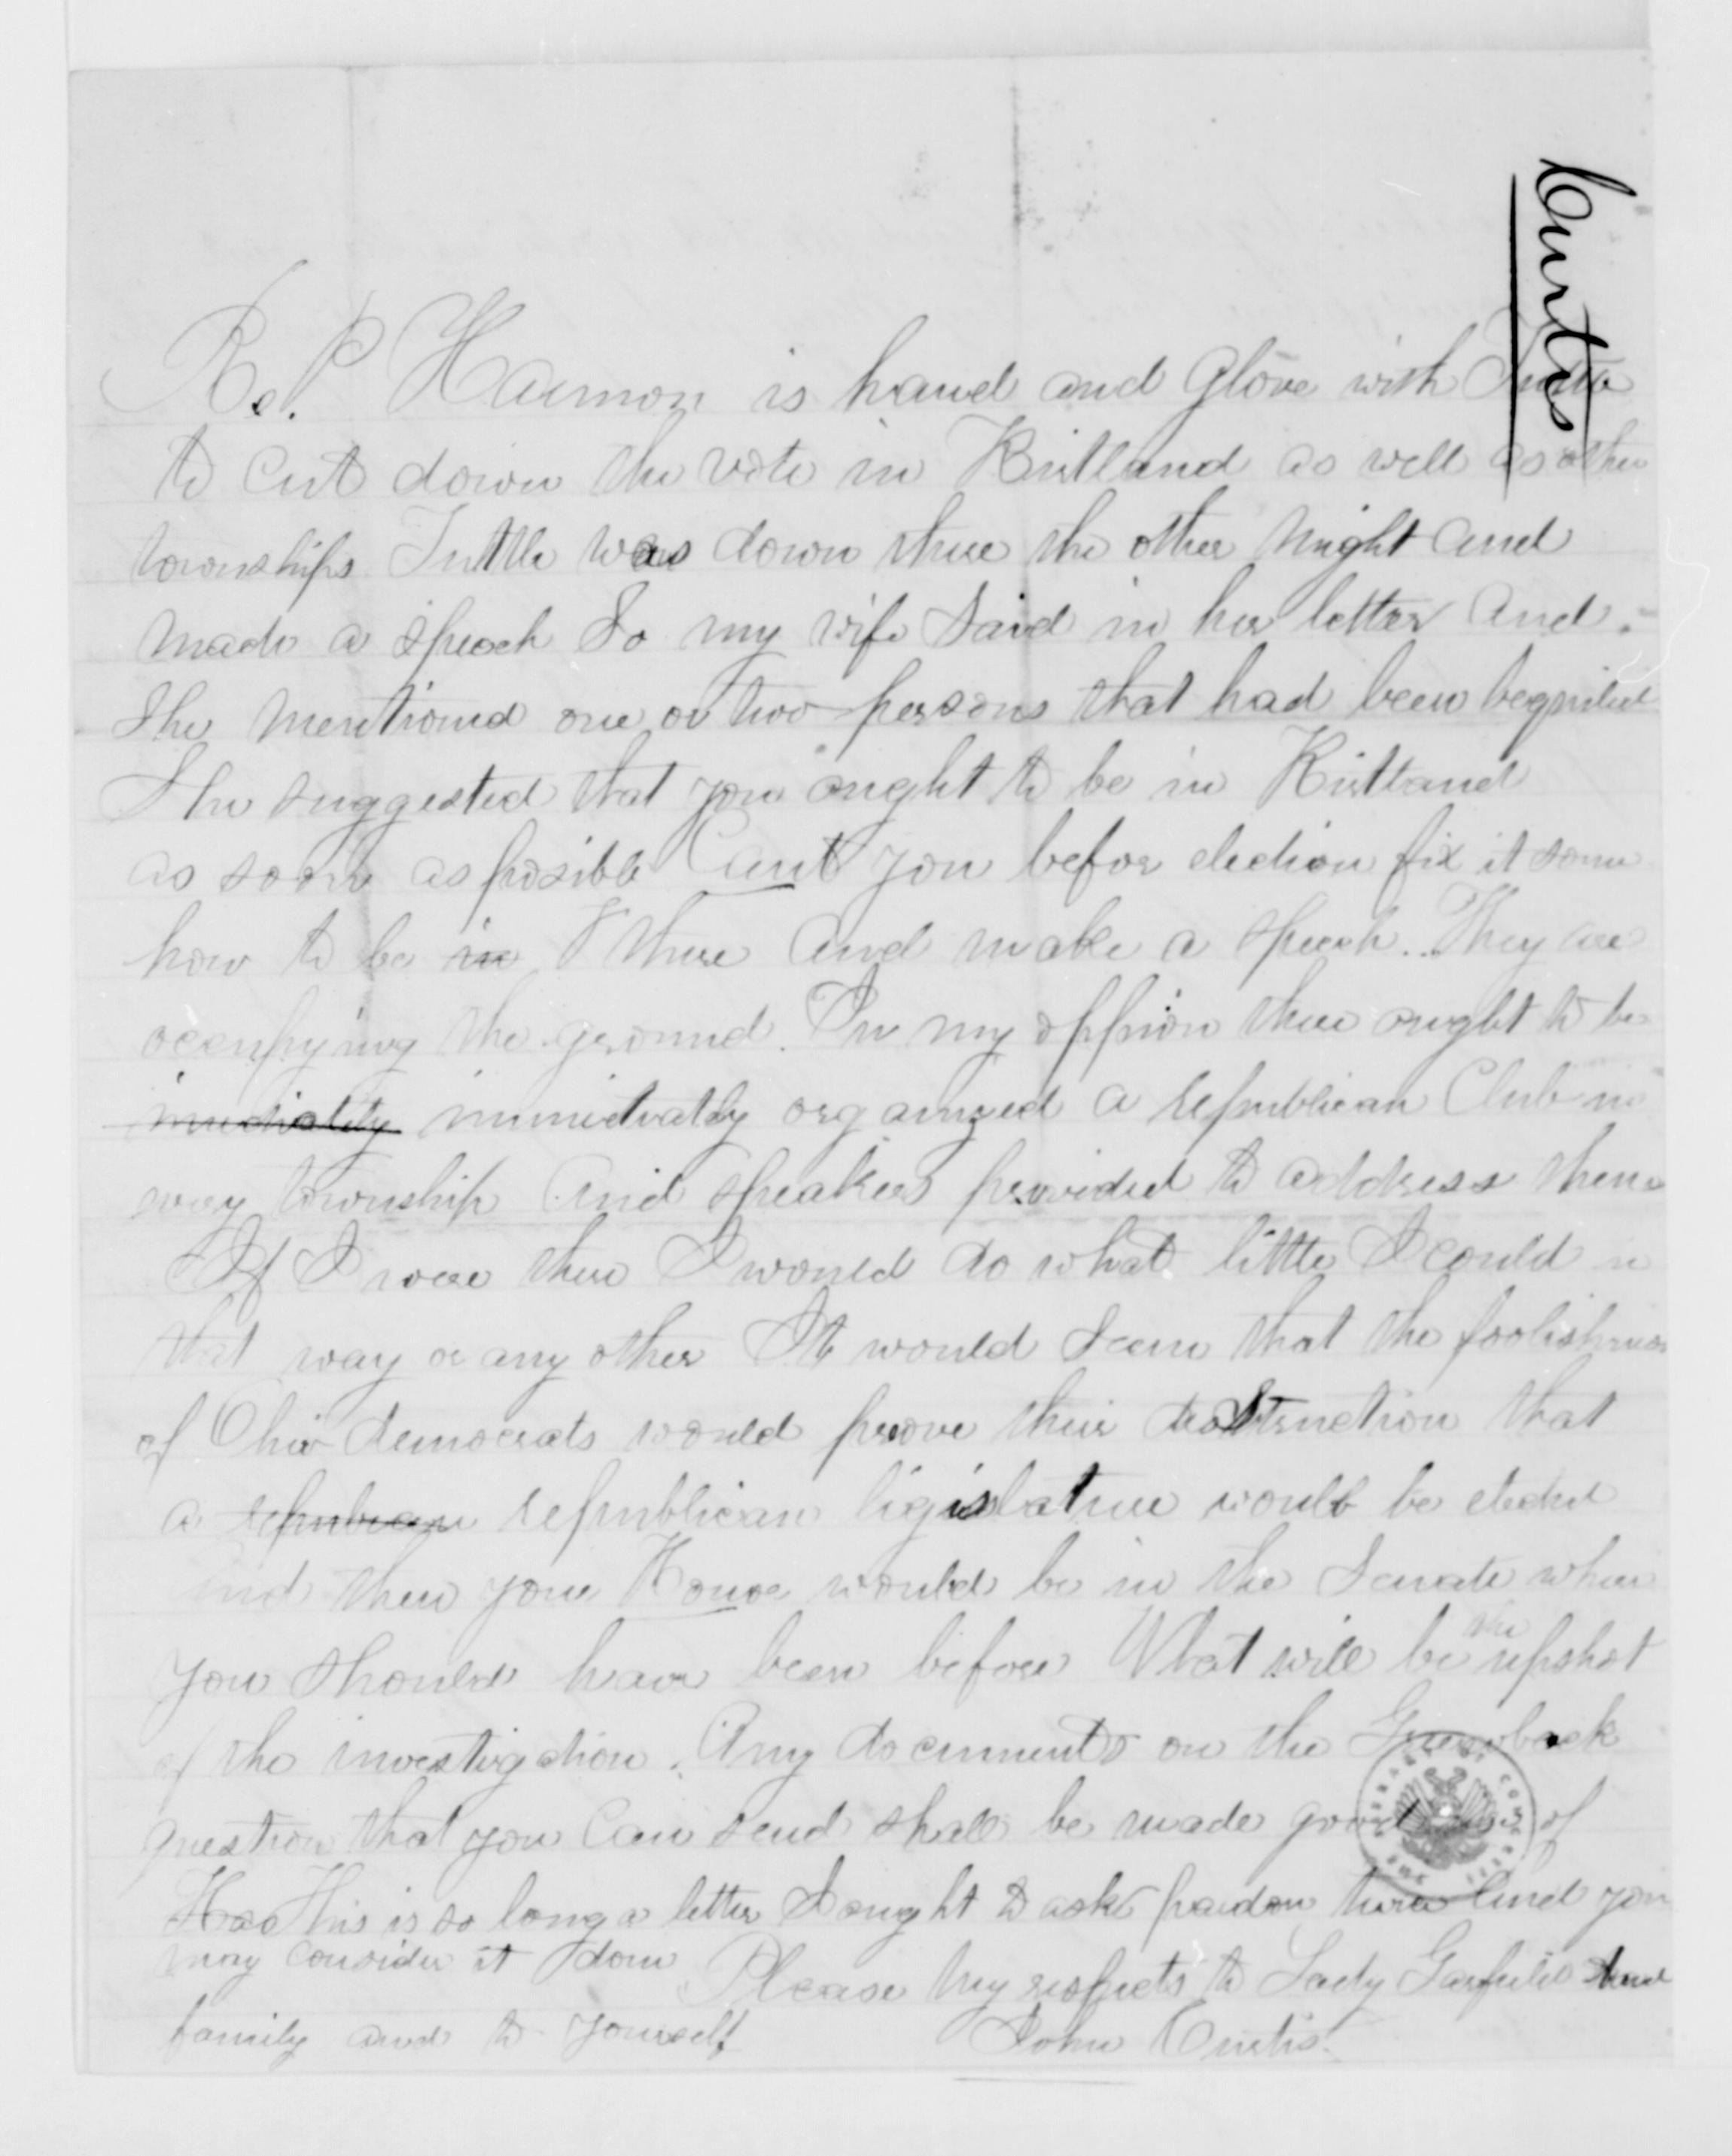 Curtis
R. P. Harmon is hand and glove with Tuttle
to cut down the vote in Kirtland as well as other
townships Tuttle was down there the other night and
made a speech So my wife Said in her letter and
She mentiond one or two persons that had been beguiled
She suggested that you ought to be in Kirtland
as soon as posible Cant you befor election fix it some
how to be in there and make a speech. They are
occupying the ground. In my oppion there ought to be
imediatly immietvatly organized a republican Club in
evry township and speakers provided to address them
If I were there I would do what little I could in
that way or any other It would Seem that the foolishness
of Ohio democrats would prove their destruction that
a republican legislature would be elected
and then your Honor would be in the Senate where
you should have been before What will be the upshot
of the investigation. Any documents on the Greenback
question that you can send shall be made good use of
This is so long a letter I ought to ask pardon twice and you
may consider it done Please my respects to Lady Garfield and
family and to yourself John Curtis.